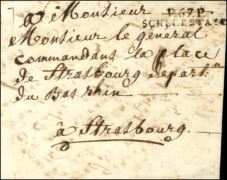 à Monsieur
P.67.P.
SCHELESTAT
Monsieur le général
commandant la place
de Strasbourg départ
du Bas rhin
à Strasbourg